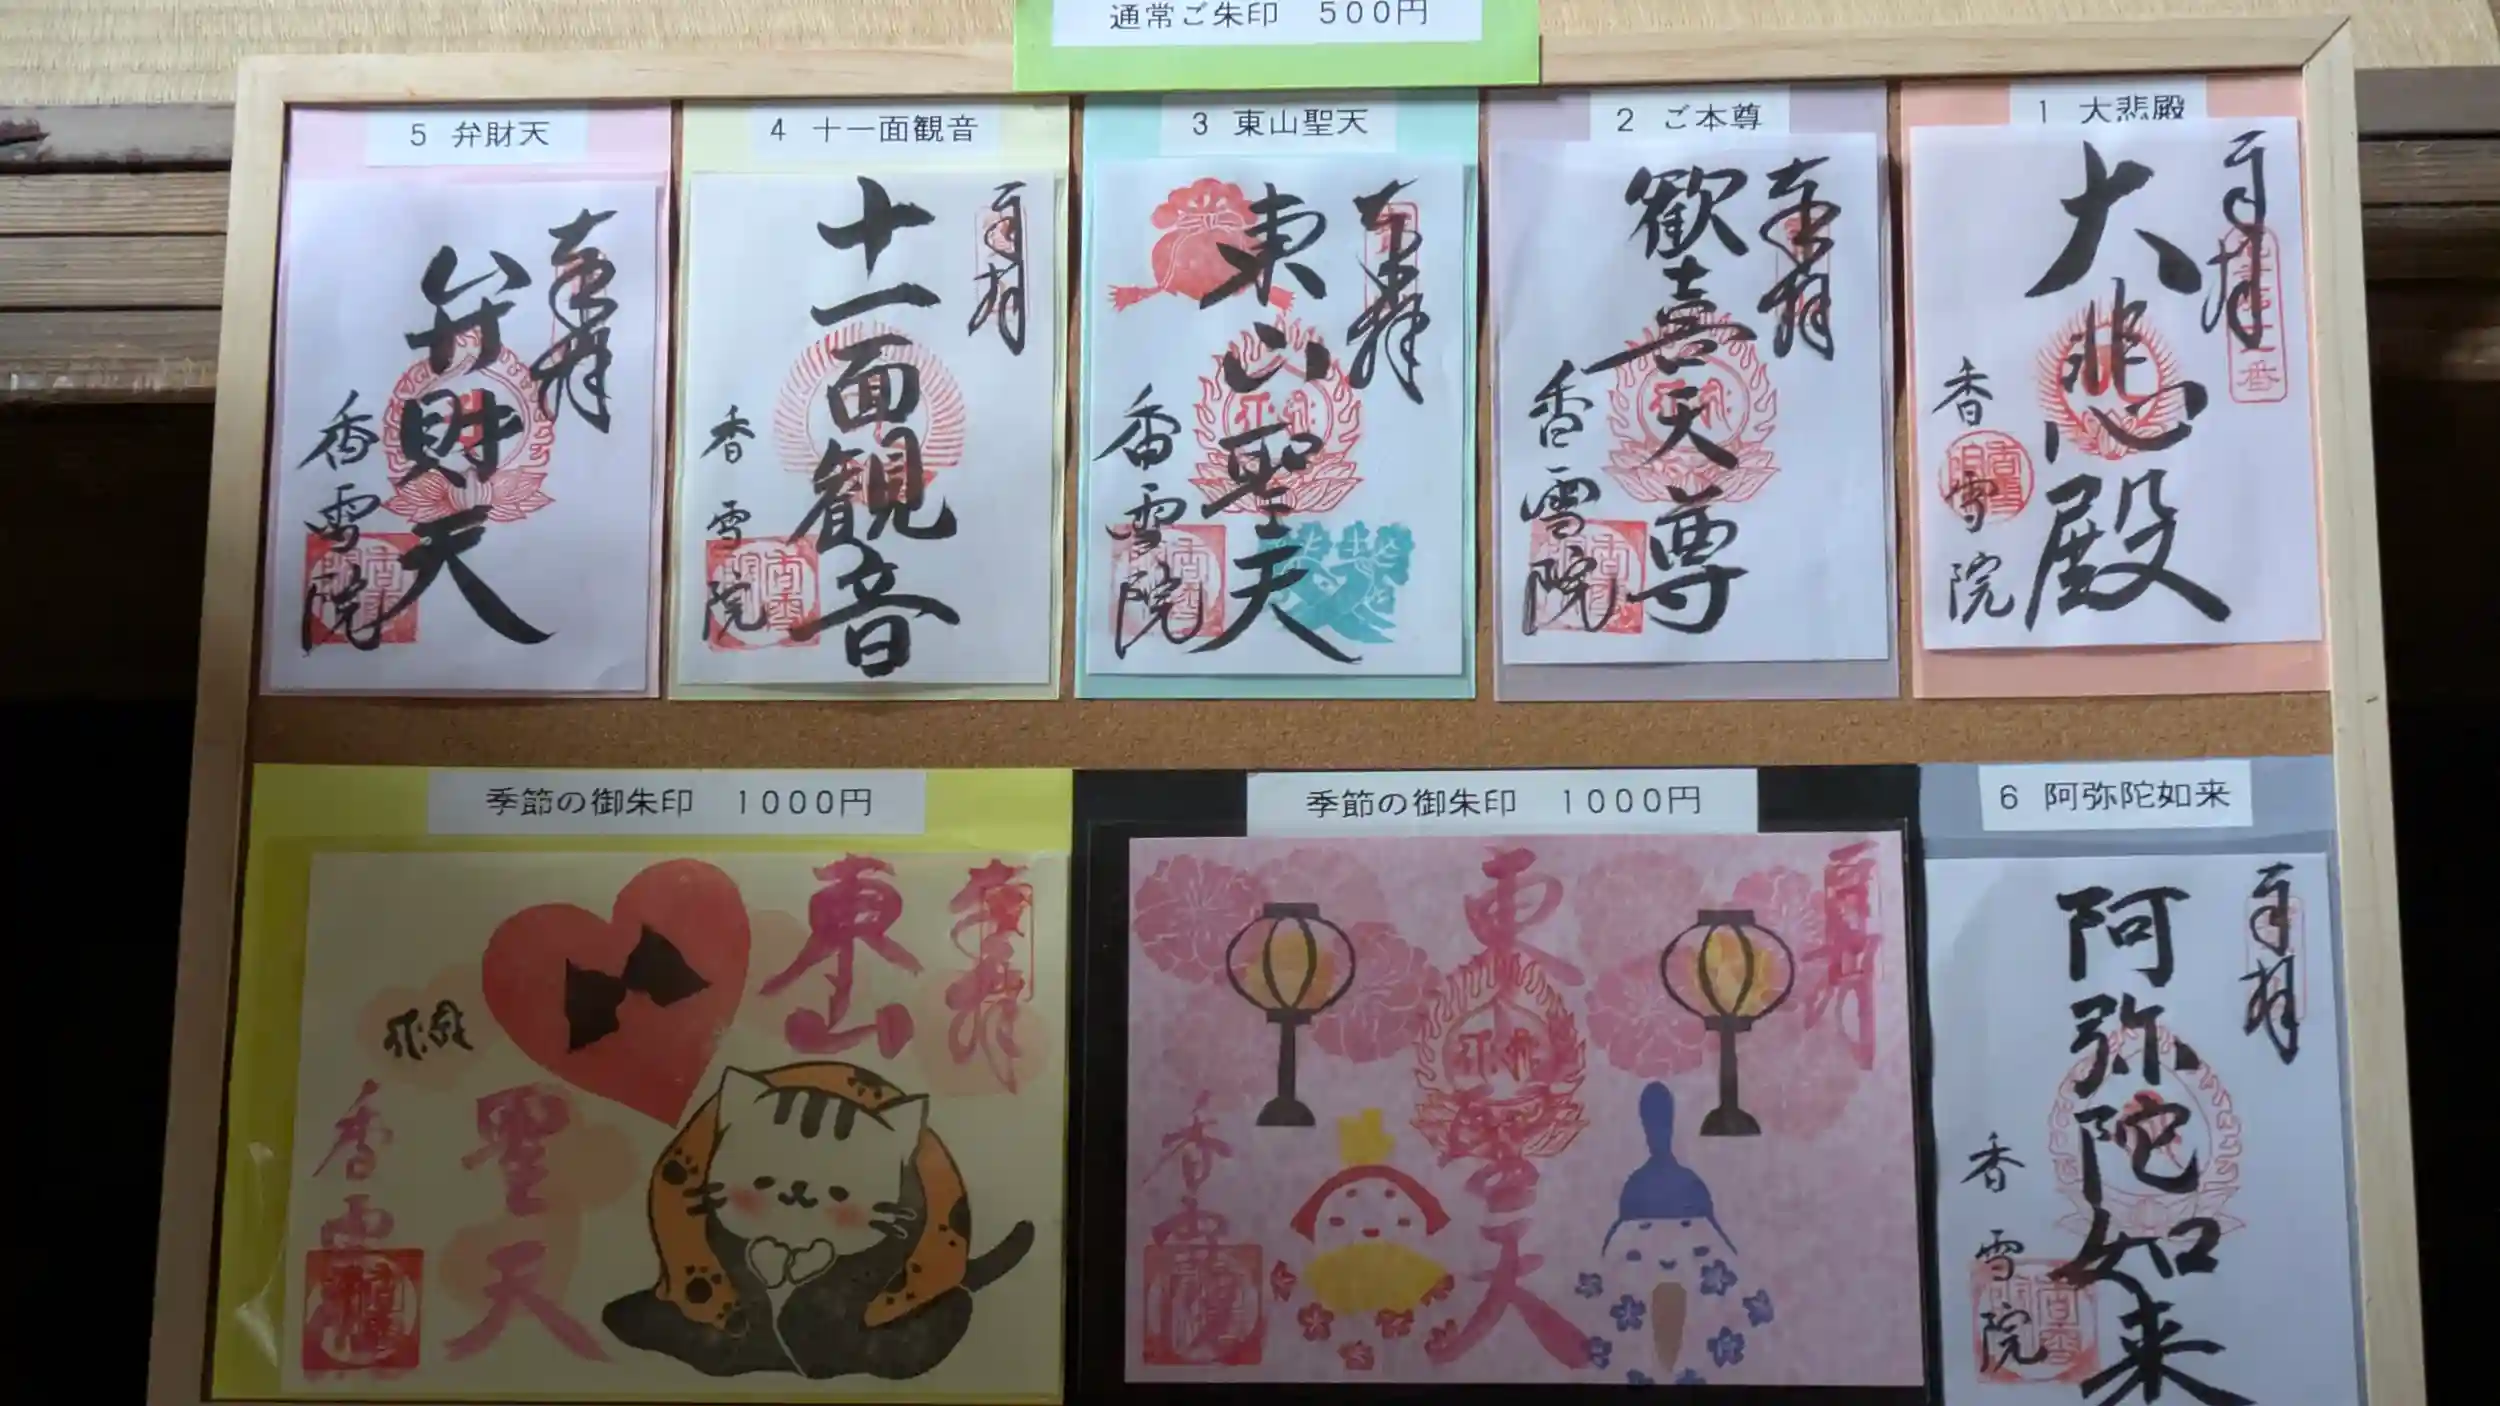 通常ご朱印　500円
1　大悲殿
奉拝
大悲殿
香雪院
2　ご本尊
奉拝
歓喜天尊
香雪院
3　東山聖天
奉拝
東山聖天
香雪院
4　十一面観音
奉拝
十一面観音
香雪院
5　弁財天
奉拝
弁財天
香雪院
6　阿弥陀如来
奉拝
阿弥陀如来
香雪院
季節の御朱印　1000円
奉拝
東聖天
香雪院
季節の御朱印　1000円
奉拝
東山
聖天
香雪院